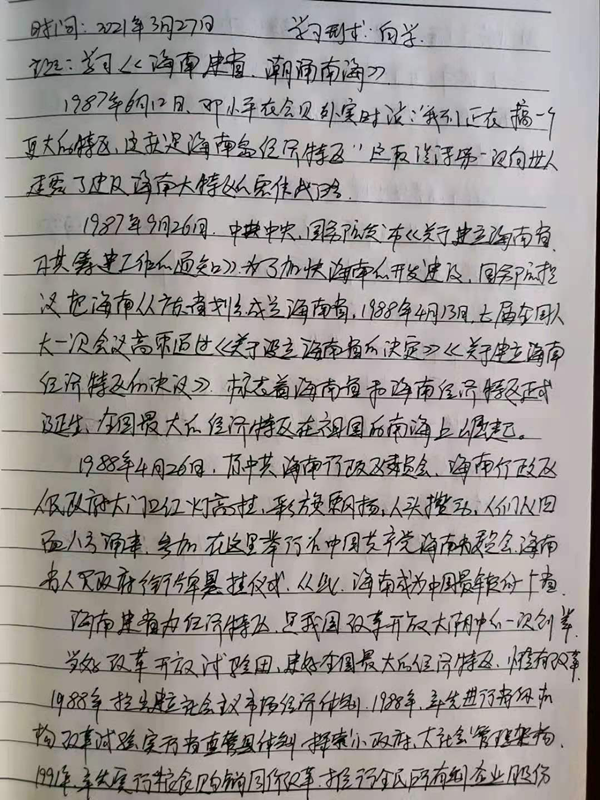 时间：2021年3月27日 学习形式：自学
主题：学习《海南建省、潮涌南海》
1987年6月12日，邓小平在会见外宾时说：“我们正在搞一个
更大的特区，这就是海南岛经济特区”这段谈话第一次向世人
透露了建设海南大特区的宏伟战略
1987年9月26日，中共中央、国务院发布《关于建立海南省
及其筹建工作的通知》。为了加快海南的开发建设，国务院提
议把海南从广东省划出成立海南省，1988年4月13日，七届全国人
大一次会议高票通过《关于设立海南省的决定》《关于建立海南
经济特区的决议》。标志着海南省和海南经济特区正式
诞生，全国最大的经济特区在祖国的南海上崛起。
1988年4月26日，原中共海南行政区委员会、海南行政区
人民政府大门口红灯高挂，彩旗飘扬，人头攒动，人们从四
面八方涌来，参加在这里举行的中国共产党海南省委员会、海南
省人民政府衔牌悬挂仪式，从此，海南成为中国最年轻的省
海南建省办经济特区，是我国改革开放大潮中的一次创举
当好改革开放试验田，建好全国最大的经济特区，惟有改革
1988年提出建立社会主义市场经济体制，1988年，率先进行省级机
构改革试验实行省直管县体制 探索小政府、大社会管理架构，
1991年，率先实行粮食购销同价改革，推行全民所有制企业股份